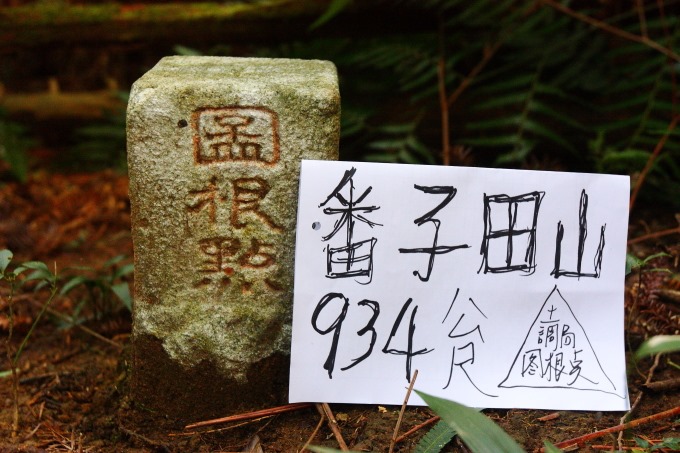 圖根點
番子田山
934公尺
土調局
图根点